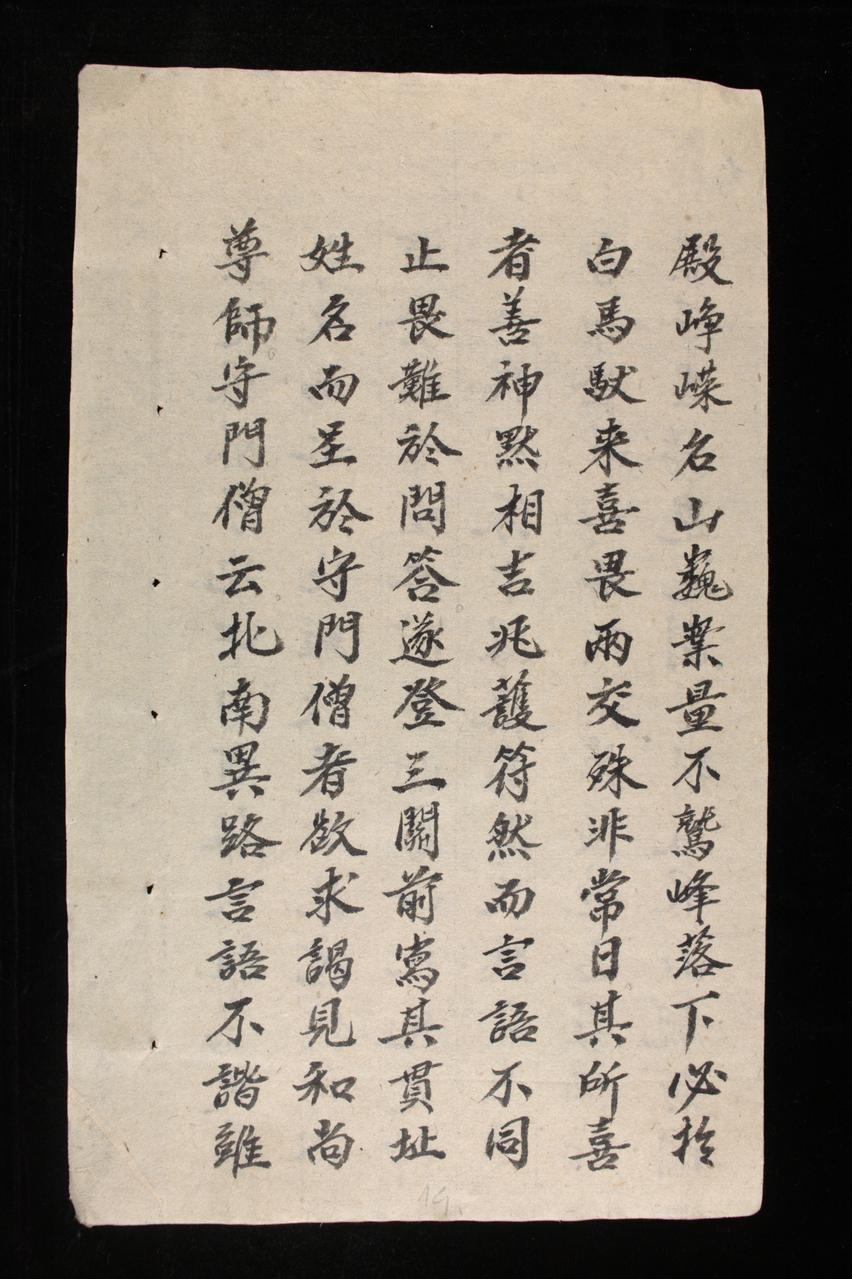 殿崢嶸名山巍業量不鷲峰落下必於
白馬馱来喜畏兩交殊非常日其所喜
者善神黙相吉兆護符然而言語不同
止畏難於問答遂登三關前寫其貫址
姓名而呈於守門僧者欲求謁見和尚
尊師守門僧云北南異路言語不諧雖